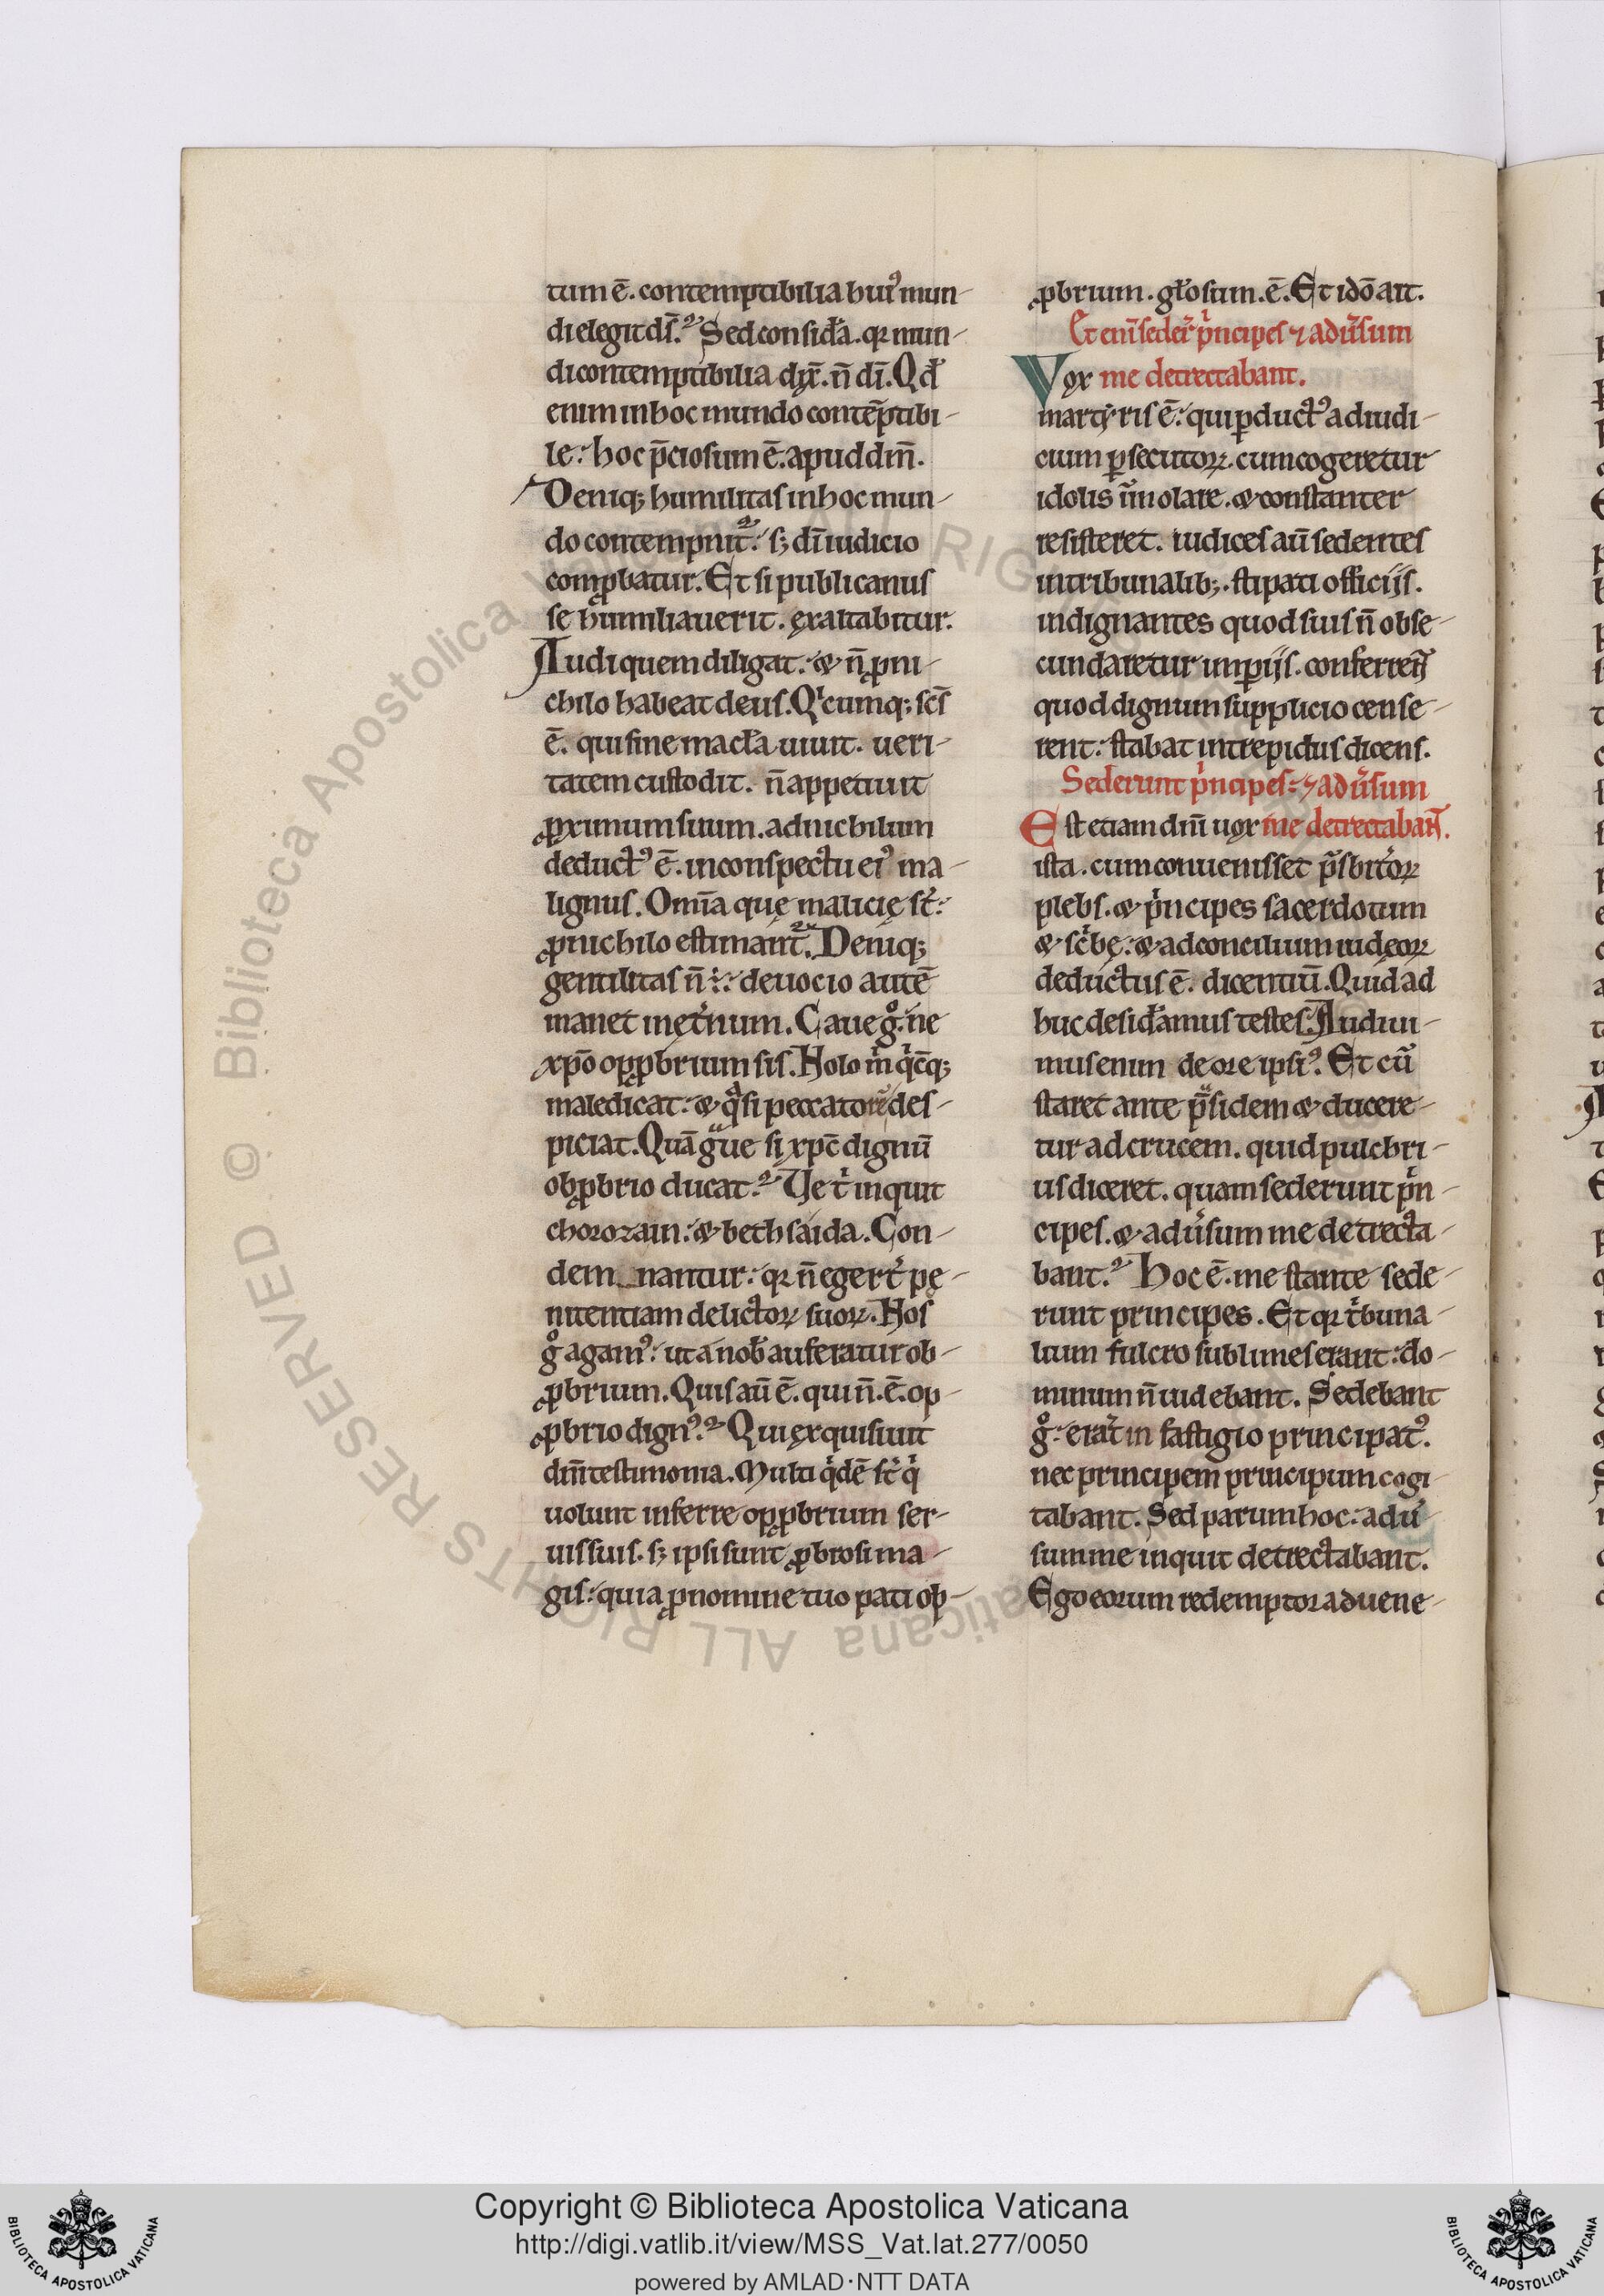 tum ē. contemptibilia hui᷒ mun-
di elegit ds̄. Sed consid̓a. qꝛ mun-
di contemptibilia dyx̄. n̄ dī. Qd̓
enim in hoc mundo contēptibi-
le: hoc p̄ciosum ē. apud dm̄.
Deniqꝫ humilitas in hoc mun-
do contempnit̄᷒: sꝫ dī iudicio
comꝓbatur. Et si publicanus
se humiliauerit. exaltabitur.
Audi quem diligat: & n̄ ꝓ ni-
chilo habeat deus. Qͥcumqꝫ scs̄
ē. qui sine macl̓a uiuit. ueri-
tatem custodit. n̄ appetiuit
ꝓximum suum. ad nichilum
deduct᷒ ē. in conspectu ei᷒ ma-
lignus. Omīa que malicię st̄:
ꝓ nichilo estimant᷒. Deniqꝫ
gentilitas n̄ ÷: deuocio autē
manet inęt̓num. Caue gͦ. ne
xp̄o opꝓbrium sis. Nolo m̓ qͥcūqꝫ
maledicat: & qͣsi peccatorē des-
piciat. Quā gͣue si xp̄c dignū
obꝓbrio ducat. Ue t̓ inquit
chorozain: & bethsaida. Con-
dem_nantur: qꝛ n̄ egert̓ pę-
nitentiam delictoꝝ suoꝝ. Hos
gͦ agam᷒: ut a nob̓ auferatur ob-
ꝓbrium. Quis aū ē. qui n̄. ē. op-
ꝓbrio dign᷒. Qui exquisiuit
dn̄i testimonia. Multi qͥdē st̄ qͥ
uolunt inferre opꝓbrium ser-
uis suis. sꝫ ipsi sunt ꝓbrosi ma-
gis: quia ꝓ nomine tuo pati op-
ꝓbrium. gl̓osum. ē. Et idō ait.
Et enī seder̄ pͥncipes ⁊ adu̓sum
Vox me detrectabant.
martyris ē: qui ꝑduct᷒ ad iudi-
cium ꝑsecutoꝝ. cum cogeretur
idolis īmolare. & constanter
resisteret. iudices aū sedentes
in tribunalibꝫ. stipati officiis.
indignantes quod suis n̄ obse-
cundaretur impiis. conferrent
quod dignum supplicio cense-
rent: stabat intrepidus dicens.
Sederunt pͥncipes: ⁊ adu̓sum
Est etiam dn̄i uox me detrectabant.
ista. cum conuenisset pͣsbit̓oꝝ
plebs. & pͥncipes sacerdotum
& scͥbę: & ad concilium iudęoꝝ
deductus ē. dicentiū. Quid ad
huc desid̓amus testes. Audiui-
mus enim de ore ipsi᷒. Et cū
staret ante pͣsidem & ducere-
tur ad crucem. quid pulchri-
us diceret. quam sederunt pͥn-
cipes. & adu̓sum me detrecta-
bant. Hoc ē. me stante sede-
runt principes. Et qꝛ tͥbuna-
lium fulcro sublimes erant: do-
minum n̄ uidebant. Sedebant
gͦ: erat̄ in fastigio principat᷒.
nec principem principum cogi-
tabant. Sed parum hoc: adu̓
sum me inquit detrectabant.
Ego eorum redemptor aduene-
Copyright © Biblioteca Apostolica Vaticana
http://digi.vatlib.it/view/MSS_Vat.lat.277/0050
powered by AMLAD·NTT DATA